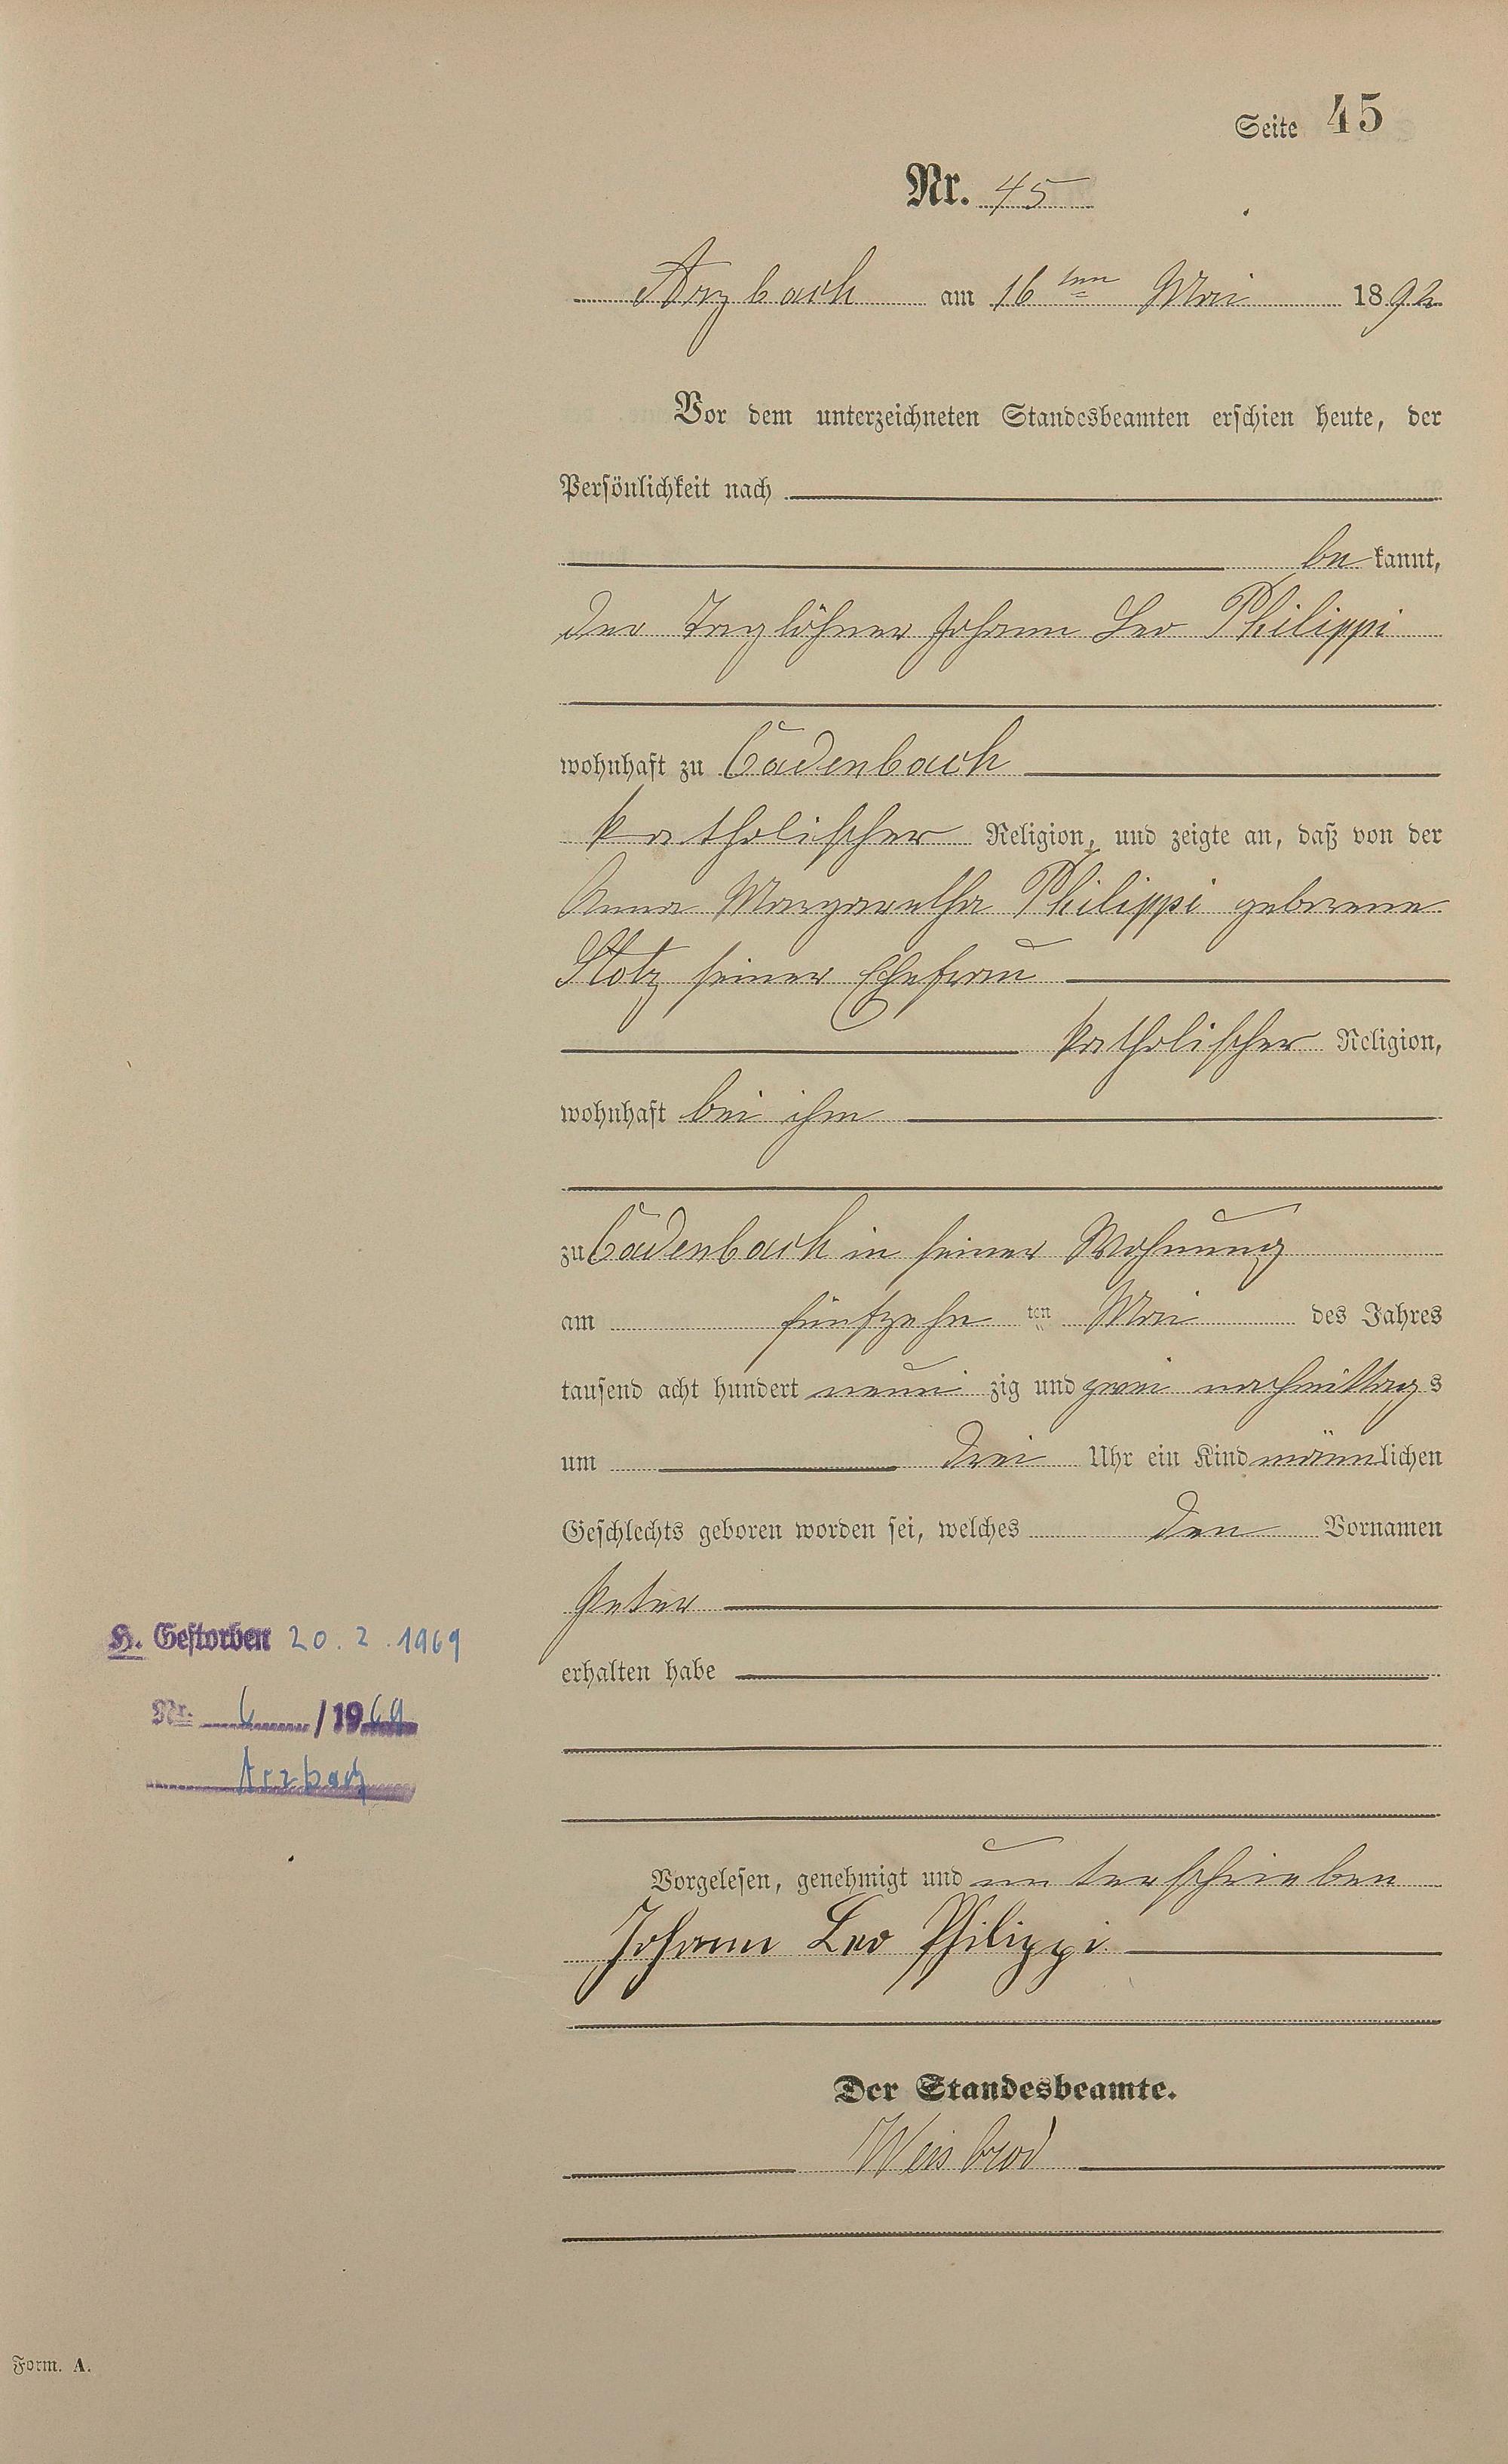 Seite 45
Nr. 45
Arzbach am 16ten Mai 1892
Vor dem unterzeichneten Standesbeamten erschien heute, der
Persönlichkeit nach
be kannt,
der Taglöhner Johann Leo Philippi
wohnhaft zu Cadenbach
katholischer Religion, und zeigte an, daß von der
Anna Margaretha Philippi geborene
Stotz seiner Ehefrau
katholischer Religion,
wohnhaft bei ihm
zu Cadenbach in seiner Wohnung
am fünfzehn ten Mai des Jahres
tausend acht hundert neun zig und zwei nachmittags
um drei Uhr ein Kind männlichen
Geschlechts geboren worden sei, welches den Vornamen
Peter
H. Gestorben 20.2.1969
erhalten habe
Nr. 6 /1969
Arzbach
Vorgelesen, genehmigt und unterschrieben
Johann Leo Philippi
Der Standesbeamte.
Weisbrod
Form. A.